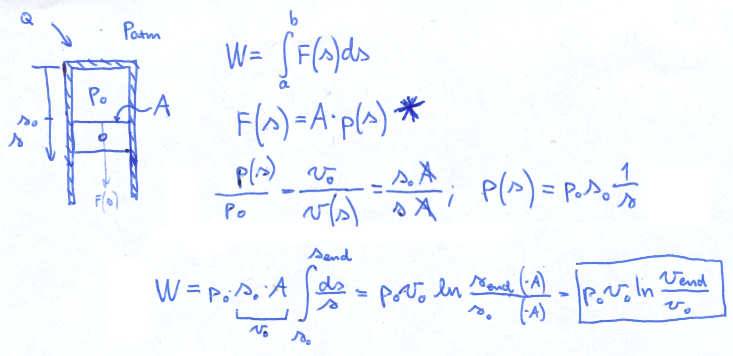 Q
Patm
p₀
A
s₀
s
F(s)
W = ∫ₐᵇ F(s)ds
F(s) = A · p(s) *
p(s)/p₀ = v₀/v(s) = s₀A/sA ; p(s) = p₀s₀ 1/s
W = p₀ · s₀ · A ∫ₛ₀ˢᵉⁿᵈ ds/s = p₀v₀ ln s_end (·A)/s₀ (·A) = p₀v₀ ln v_end/v₀
v₀